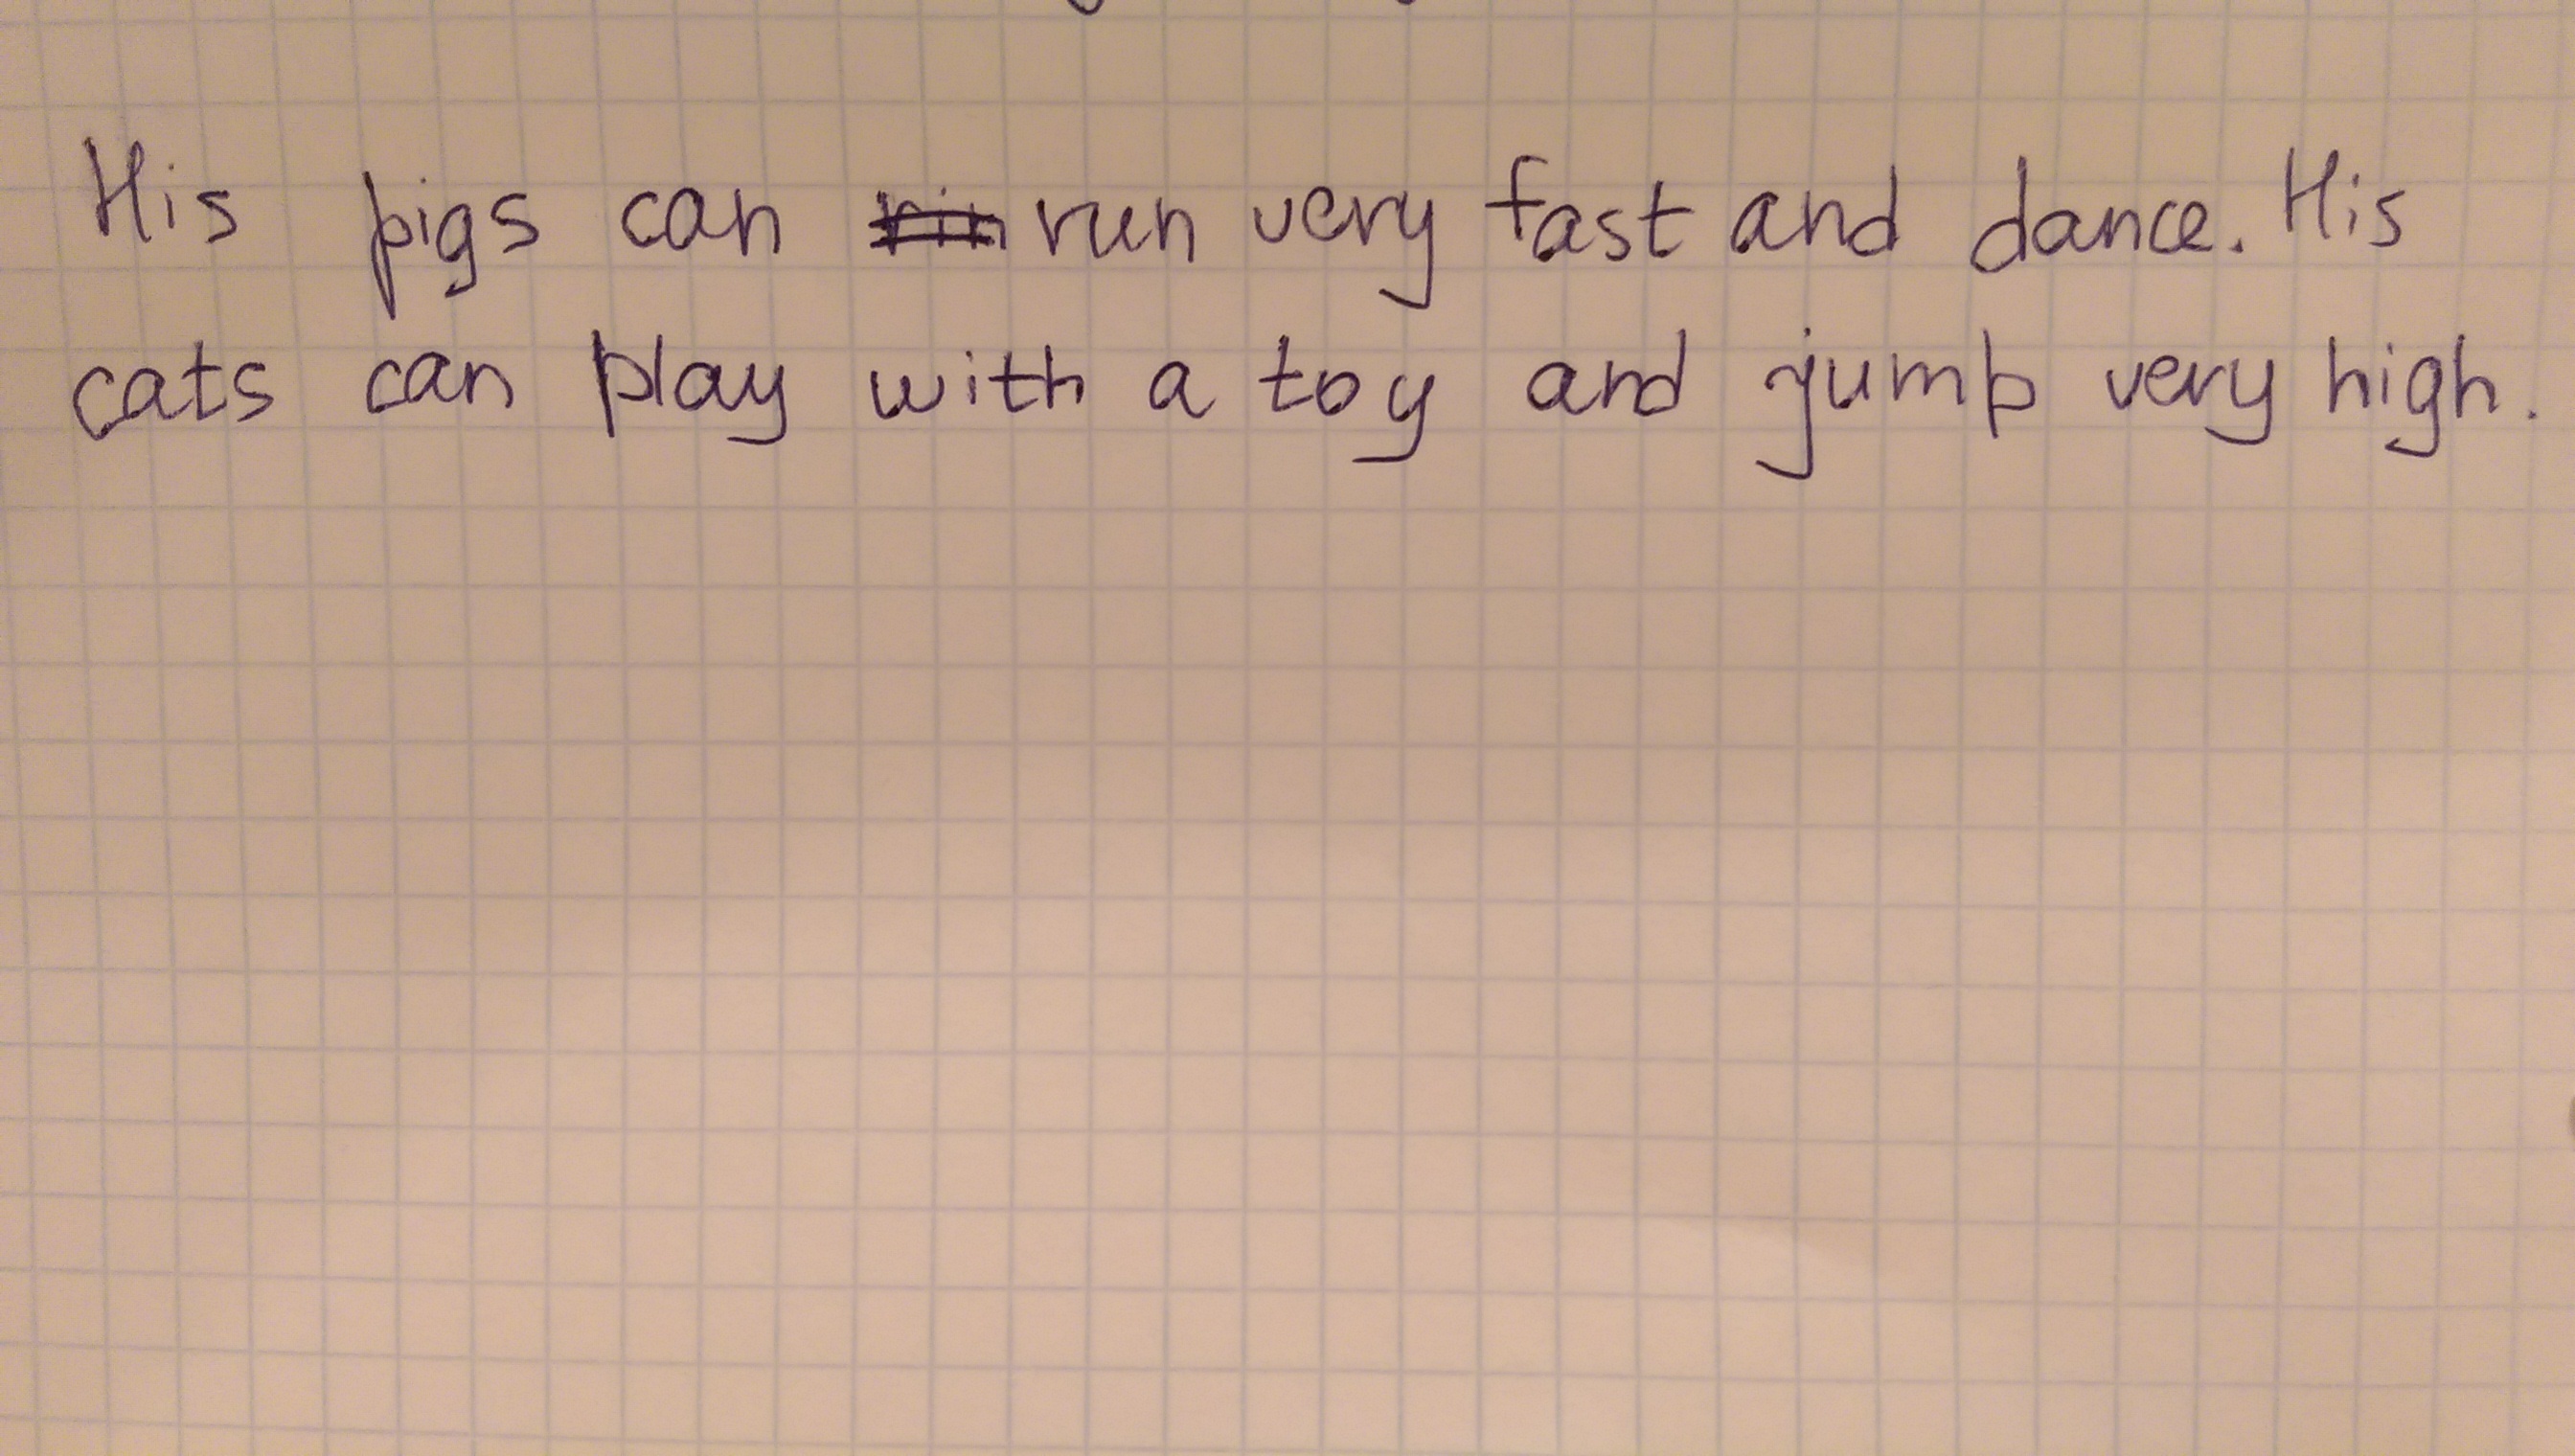 His pigs can run very fast and dance. His
cats can play with a toy and jump very high.